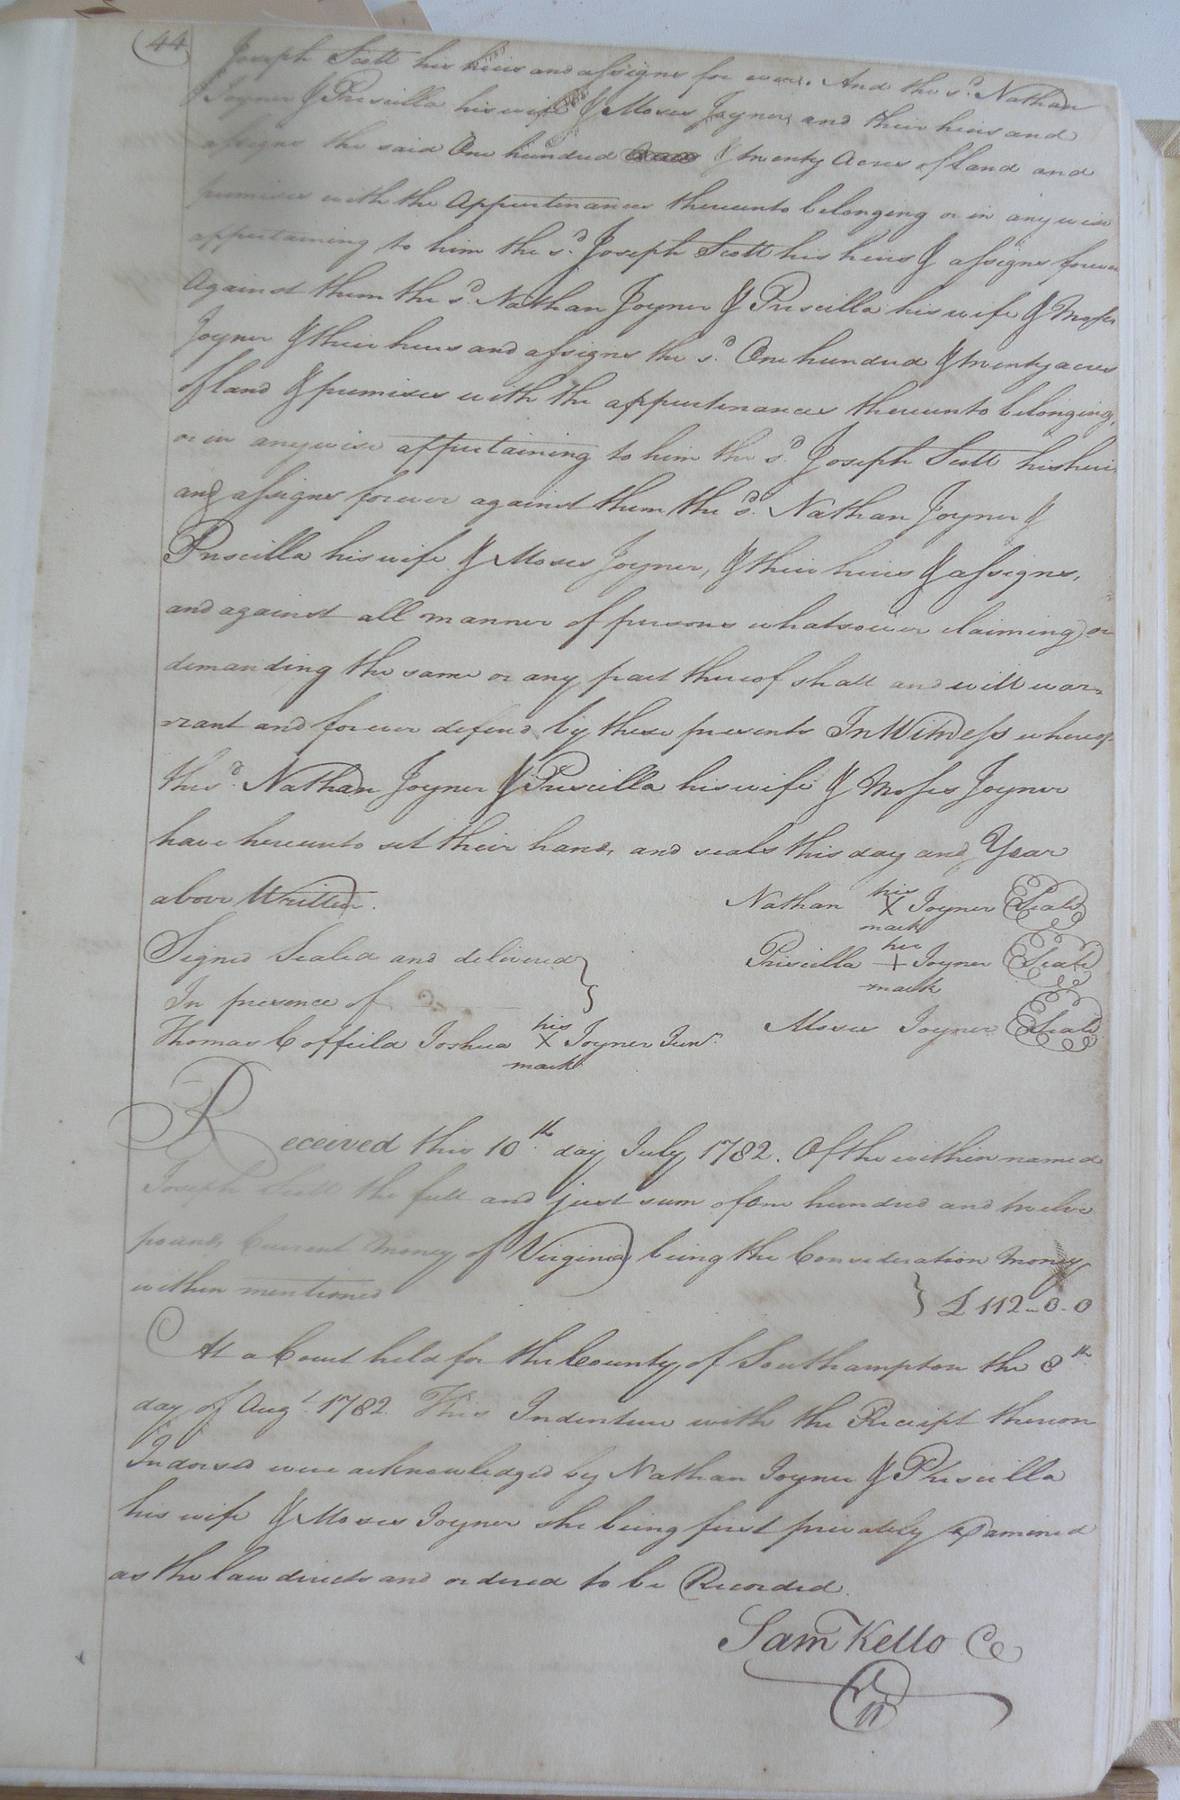 44
Joseph Scott his heirs and assigns for ever. And the sd. Nathan
Joyner & Priscilla his wife & Moses Joyner, and their heirs and
assigns the said One hundred & twenty Acres of land and
premises with the Appurtenances thereunto belonging or in any wise
appertaining to him the sd. Joseph Scott his heirs & assigns forever
Against them the sd. Nathan Joyner & Priscilla his wife & Moses
Joyner & their heirs and assigns the sd. One hundred & twenty acres
of land & premises with the appurtenances thereunto belonging,
or in anywise appertaining to him the sd. Joseph Scott his heirs
and assigns forever against them the sd. Nathan Joyner &
Priscilla his wife & Moses Joyner, & their heirs & assigns,
and against all manner of persons whatsoever claiming or
demanding the same or any part thereof shall and will war-
rant and forever defend by these presents In Witness whereof
the sd. Nathan Joyner & Priscilla his wife & Moses Joyner
have hereunto set their hands and seals this day and Year
above Written.
Nathan his X mark Joyner (Seal)
Signed Sealed and delivered }
Priscilla her + mark Joyner (Seal)
In presence of
Moses Joyner (Seal)
Thomas Coffield Joshua his X mark Joyner Junr.
Received this 10th day July 1782. Of the within named
Joseph Scott the full and just sum of one hundred and twelve
pounds Current Money of Virginia being the Consideration Money
within mentioned } £ 112-0-0
At a Court held for the County of Southampton the 8th
day of Augt. 1782 This Indenture with the Receipt thereon
Indorsed were acknowledged by Nathan Joyner & Priscilla
his wife & Moses Joyner she being first privately Examined
as the law directs and ordered to be Recorded.
Sam Kello CC